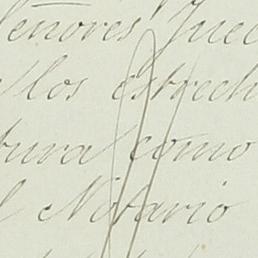 Señores Juec
los estrech
tura como
l Notario